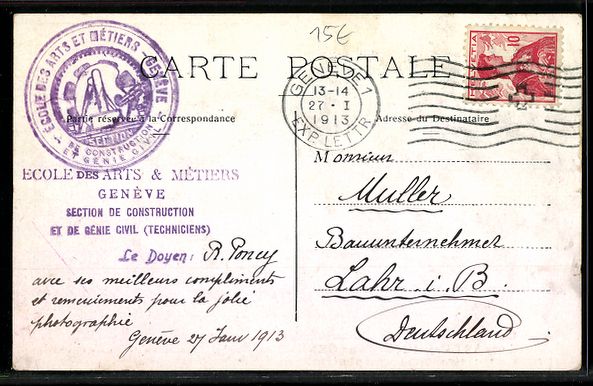 15€
ECOLE DES ARTS ET MÉTIERS - GENÈVE
SECTION
DE CONSTRUCTION
ET GÉNIE CIVIL
CARTE POSTALE
GENÈVE 1
13-14
27 · I
1913
EXP. LETTR.
HELVETIA
10
Partie réservée à la Correspondance
Adresse du Destinataire
ECOLE DES ARTS & MÉTIERS
GENÈVE
SECTION DE CONSTRUCTION
ET DE GÉNIE CIVIL (TECHNICIENS)
Le Doyen: R. Poncy
avec ses meilleurs compliments
et remerciements pour la jolie
photographie
Genève 27 Janv 1913
Monsieur
Muller
Bauunternehmer
Lahr i. B.
Deutschland